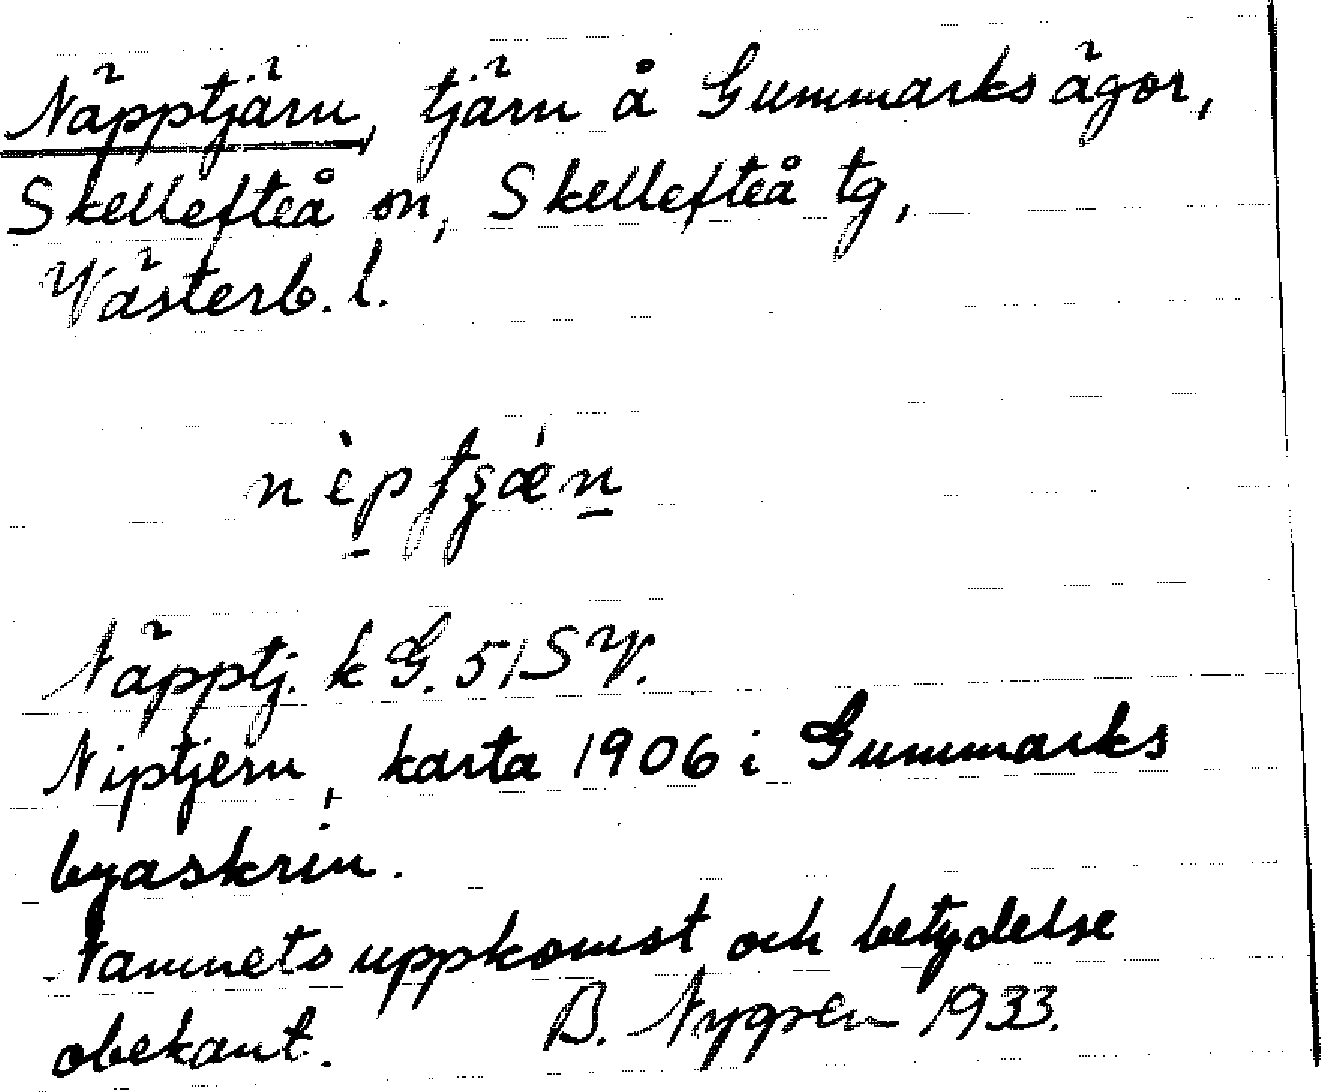 Näpptjärn, tjärn å Gummarks ägor,
Skellefteå sn, Skellefteå tg,
Västerb. l.
Näpptj. k G. 51 SV.
Niptjern, karta 1906 i Gummarks
byaskrin.
Namnets uppkomst och betydelse
obekant. B. Nygren 1933.